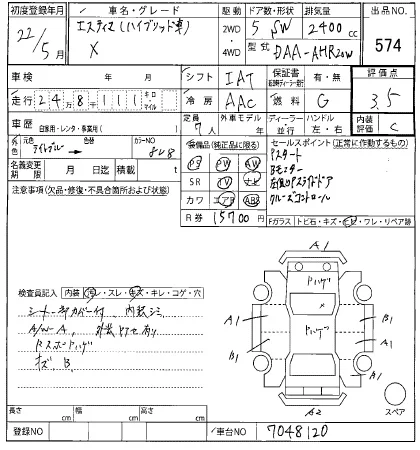 初度登録年月 車名・グレード 駆動 ドア数・形状 排気量 出品NO.
22/5月 エスティマ(ハイブリッド車) 2WD 4WD 5 SW 2400cc 574
X 型式 DAA-AHR20W
車検 年 月 シフト IAT 保証書 有・無 評価点
走行 248111 キロ・マイル 冷房 AAC 燃料 G 3.5
車歴 自家用・レンタ・事業用( ) 定員 7人 外車モデル 年 ディーラー 並行 ハンドル 左・右 内装評価 C
外色 元色 色替 カラーNO 8V8
装備品(純正品に限る) セールスポイント(正常に作動するもの)
名義変更期限 月 日迄 積載 t
PS PW AW Pスタート
SR TV ナビ Bモニター
カワ エアB ABS クルーズコントロール
R券 15700 円
Fガラス トビ石・キズ・ヒビ・ワレ・リペア跡
注意事項(欠品・修復・不具合箇所および状態)
A1
ドハゲ
A1 X B1
ドハゲ
B1 A1
A1
A2
スペア
検査員記入 内装 汚・スレ・キズ・キレ・コゲ・穴
シートカバー付 内装シミ
A/W A 外装とて有り
キズ B
長さ cm 幅 cm 高さ cm
登録NO 車台NO 7048120